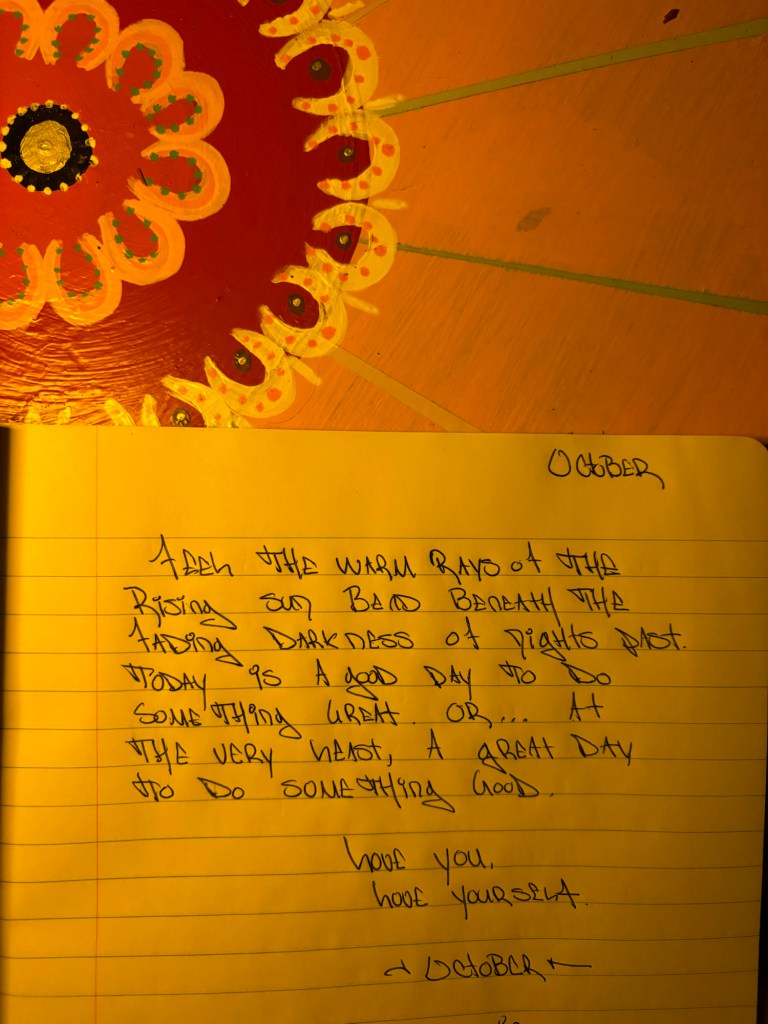 OCTOBER
FEEL THE WARM RAYS OF THE
RISING SUN BEND BENEATH THE
FADING DARKNESS OF NIGHTS PAST.
TODAY IS A GOOD DAY TO DO
SOMETHING GREAT. OR... AT
THE VERY LEAST, A GREAT DAY
TO DO SOMETHING GOOD.
LOVE YOU.
LOVE YOURSELF.
~ OCTOBER ~